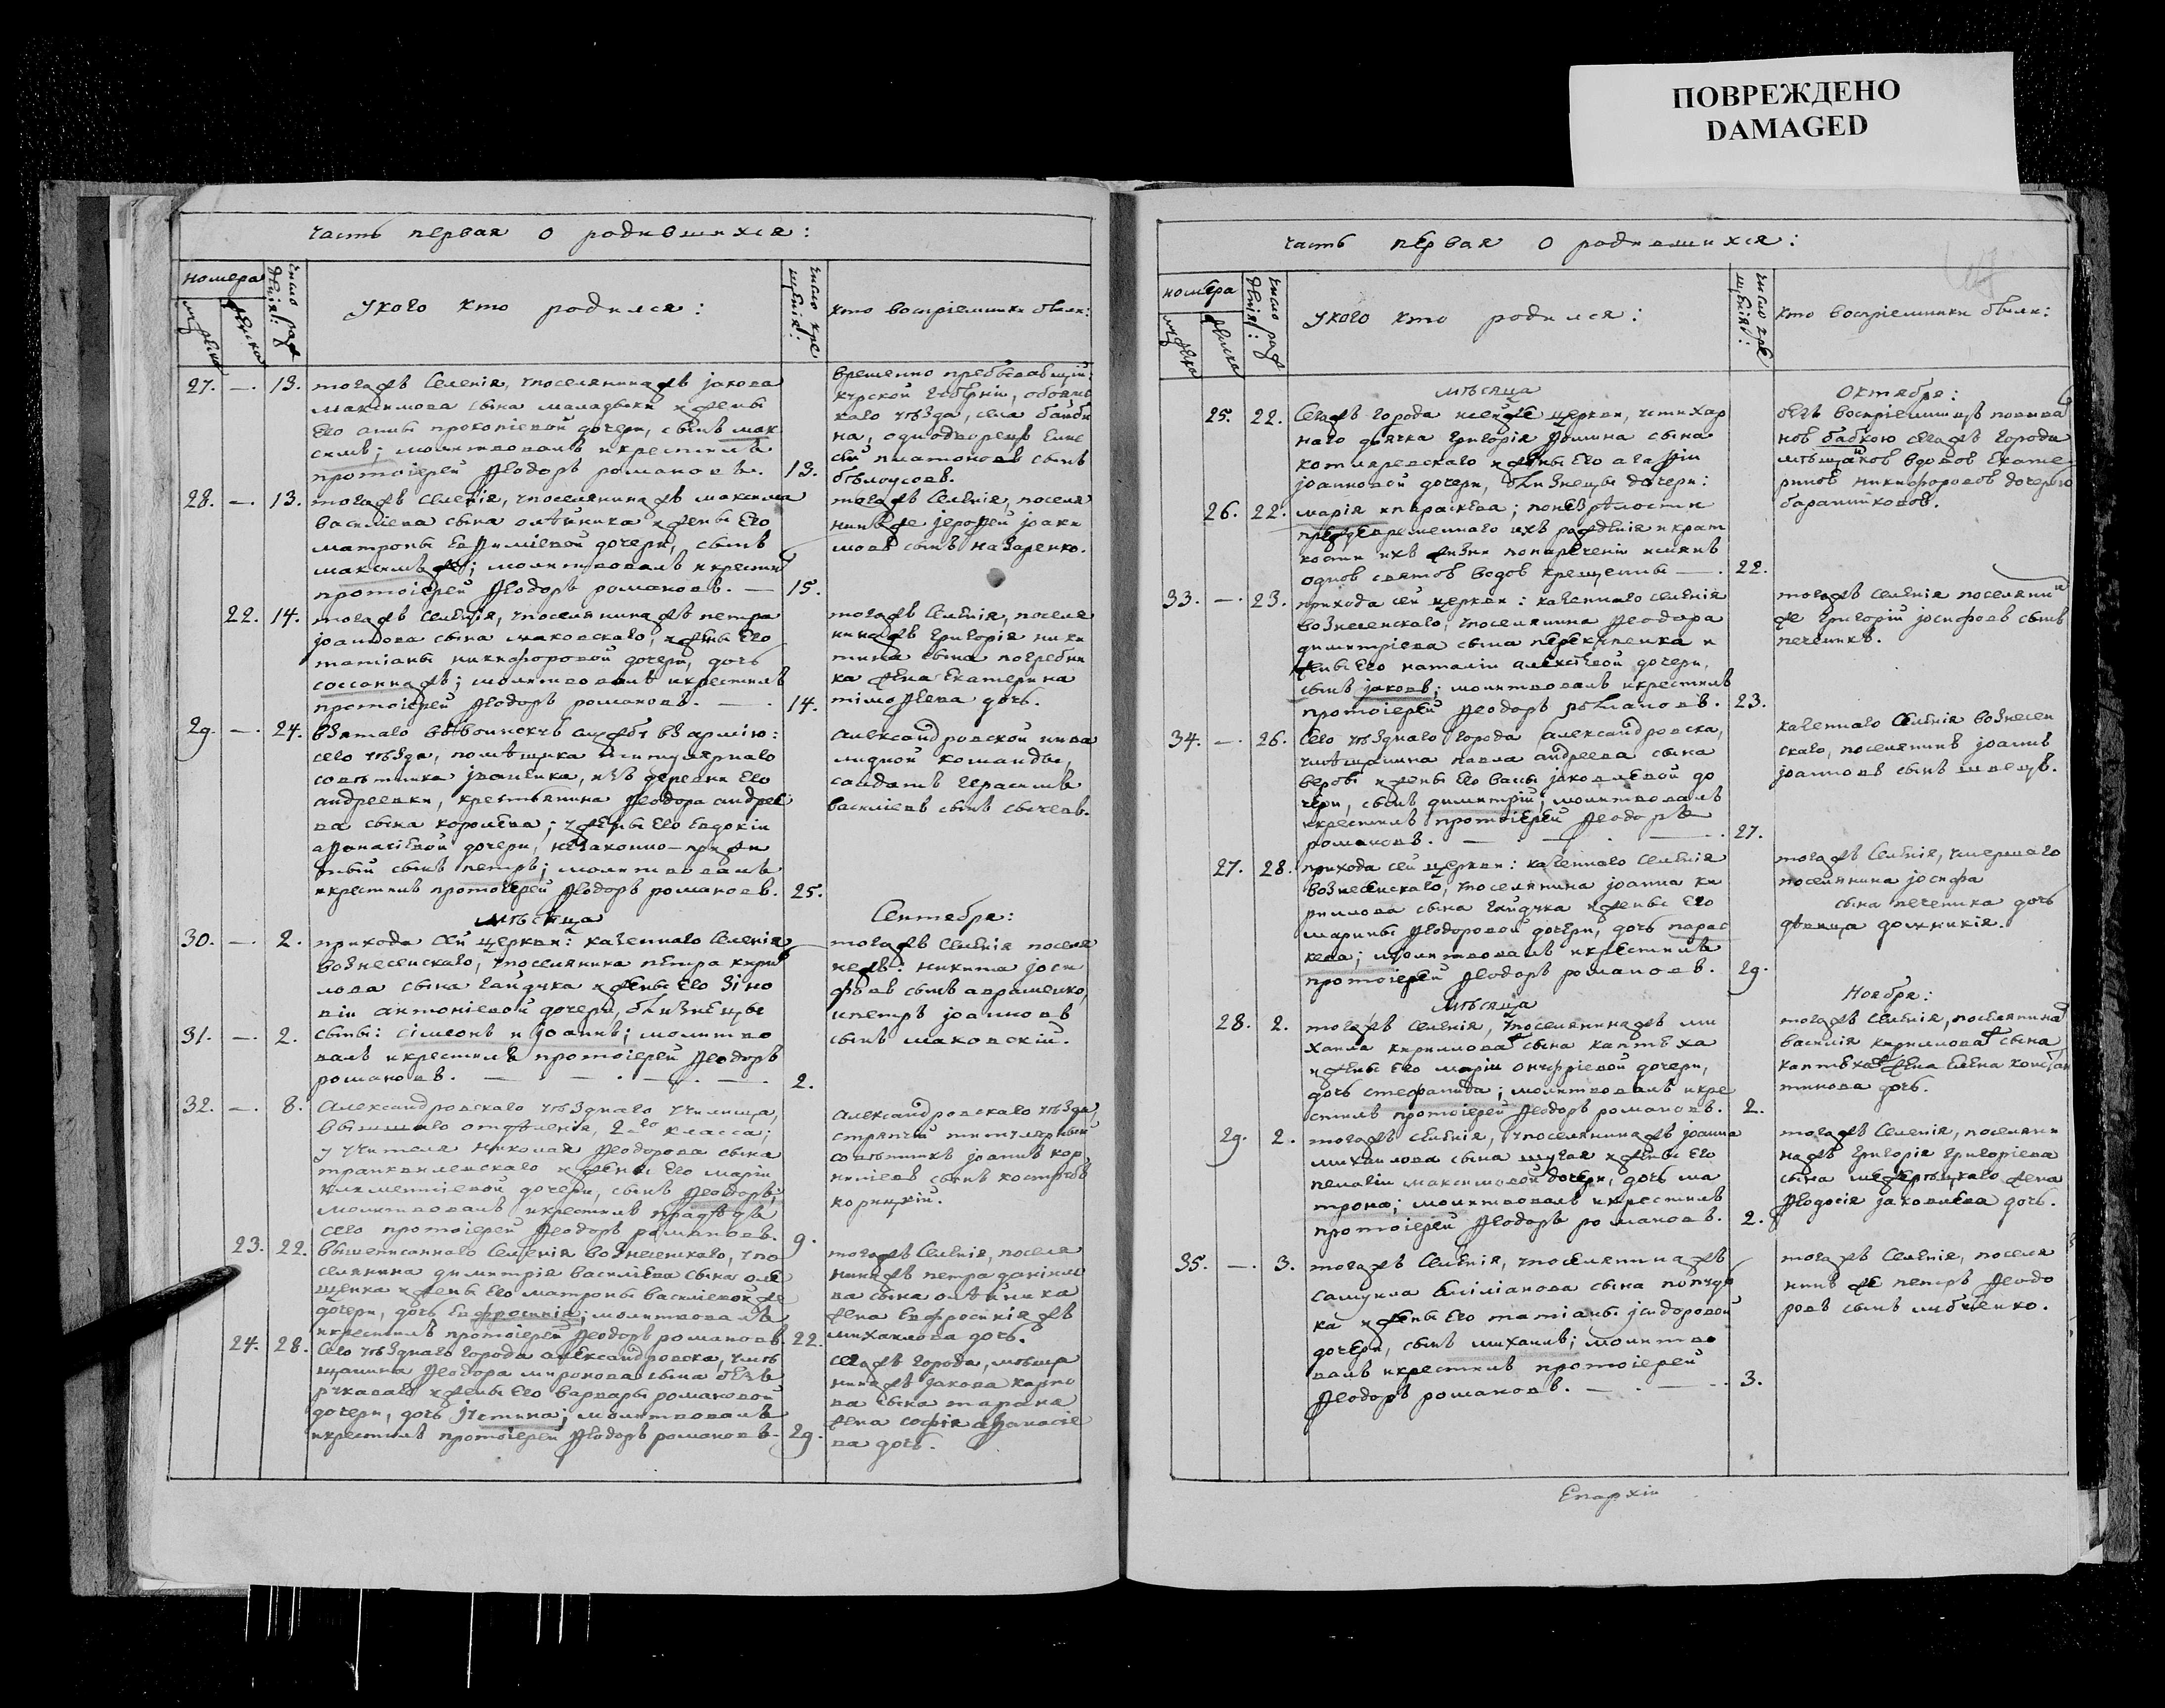 ПОВРЕЖДЕНО
DAMAGED
часть первая о родившихся:
номера
мужеска
женска
число рождѣнія:
у кого кто родился:
число крещѣнія:
кто воспріемники были:
27. —. 13. тогажъ Селенія, у поселянина жъ јакова
максимова сына
его анны прокопіевой дочери, сынъ мак
симъ; молитвовалъ и крестилъ
протоіерей Ѳеодоръ романовъ. 13.
временно пребывающій:
курской губѣрніи, обоянс
каго уѣзда, села
на, однодворецъ Елис
ѣй платоновъ сынъ
бѣлоусовъ.
28. —. 13. тогажъ Селенія, у поселянина жъ максима
василіева сына олѣйника и жены его
матроны Евѳиміевой дочери, сынъ
максимъ же; молитвовалъ и крестилъ
протоіерей Ѳеодоръ романовъ. — 15.
тогажъ Селенія, поселя
нинъ же јероѳей јоаки
мовъ сынъ назаренко.
22. 14. тогажъ Селенія, у поселянина жъ петра
јоаннова сына маковскаго, и жены его
татіаны никифоровой дочери, дочь
соссанна жъ; молитвовалъ и крестилъ
протоіерей Ѳеодоръ романовъ. — . 14.
тогажъ Селенія, поселя
нина жъ григорія ники
тина сына погребня
ка жена Екатерина
тімоѳѣева дочь.
29. —. 24. взятаго въ воинскую службу въ армію:
сего уѣзда, помѣщика титулярнаго
совѣтника јваненка, изъ деревни его
андреевки, крестьянина Ѳеодора андрее
ва сына королева; у жены его Евдокіи
аѳанасіевой дочери, незаконно-прижи
тый сынъ петръ; молитвовалъ
и крестилъ протоіерей Ѳеодоръ романовъ. 25.
александровской инва
лидной команды,
салдатъ герасимъ
василіевъ сынъ сычевъ.
мѣсяца Сентебря:
30. —. 2. прихода сей церкви: казеннаго селенія
вознесенскаго, у поселянина петра кири
лова сына гайдука и жены его Зіно
віи антоніевой дочери, близнецы
31. —. 2. сыны: сімеонъ и јоаннъ; молитво
валъ и крестилъ протоіерей Ѳеодоръ
романовъ. — . — . — . — . 2.
тогажъ Селенія поселя
нежъ: никита јоси
фовъ сынъ авраменко,
и петръ јоанновъ
сынъ маковскій.
32. —. 8. александровскаго уѣзднаго училища,
вышшаго отдѣленія, 2-го класса;
у учителя николая Ѳеодорова сына
транквилевскаго и жены его маріи
климентіевой дочери, сынъ Ѳеодоръ;
молитвовалъ и крестилъ прадѣдъ
его протоіерей Ѳеодоръ романовъ. 9.
александровскаго уѣзда,
стряпчій титулярный
совѣтникъ јоаннъ кор
ниліевъ сынъ
корицкій.
23. 22. вышеписаннаго селенія вознесенскаго, у по
селянина димитрія василіева сына оле
щенка и жены его матроны василіевой же
дочери, дочь Евфросинія; молитвовалъ
и крестилъ протоіерей Ѳеодоръ романовъ 22.
тогажъ Селенія, поселя
нина жъ петра даніило
ва сына олѣйника
жена Евфросинія жъ
михаилова дочь.
24. 28. Сего уѣзднаго города александровска, у мѣ
щанина Ѳеодора миронова сына безъ
рукаваго и жены его варвары романовой
дочери, дочь јустина; молитвовалъ
и крестилъ протоіерей Ѳеодоръ романовъ. 29.
сегажъ города, мѣща
нина жъ јакова карпо
ва сына тарана
жена софія аѳанасіе
ва дочь.
часть первая о родившихся:
номѣра
мужеска
женска
число рождѣнія:
у кого кто родился:
число крещѣнія:
кто воспріемники были:
мѣсяца Октября:
25. 22. Сегажъ города и сейже церкви, у стихар
наго дьячка григорія Ѳомина сына
котляревскаго и жены его агаѳіи
јоанновой дочери, близнецы дочери:
26. 22. марія и параскева; по незрѣлости и
преждевременнаго ихъ рожденія и крат
кости ихъ жизни по наречѣніи именъ
одной святой водой крещены —. 22.
безъ воспріемниковъ повива
ной бабкою сегажъ города
мѣщанкой вдовой Екате
риной никифоровой дочерью
баранниковой.
33. —. 23. прихода сей церкви: казеннаго селенія
вознесенскаго, у поселянина Ѳеодора
димитріева сына и
жены его наталіи алексѣевой дочери,
сынъ јаковъ; молитвовалъ и крестилъ
протоіерей Ѳеодоръ романовъ. 23.
тогажъ Селенія поселянин
же григорій јосифовъ сынъ
печеникъ.
34. —. 26. Сего уѣзднаго города александровска,
у мѣщанина павла андреева сына
вербы и жены его анны јаковлевой до
чери, сынъ димитрій; молитвовалъ
и крестилъ протоіерей Ѳеодоръ
романовъ. — . — . — . 27.
казеннаго Селенія вознесен
скаго, поселянинъ јоаннъ
јоанновъ сынъ швецъ.
27. 28. прихода сей церкви: казеннаго селенія
вознесенскаго, у поселянина јоанна ки
рилова сына гайдука и жены его
марины Ѳеодоровой дочери, дочь парас
кева; молитвовалъ и крестилъ
протоіерей Ѳеодоръ романовъ. 29.
тогажъ Селенія, умершаго
поселянина јосифа
сына печеника дочь
дѣвица домникія.
мѣсяца Ноября:
28. 2. тогажъ селенія, у поселянина жъ ми
хаила кирилова сына каптѣха
и жены его маріи онуфріевой дочери,
дочь стефанида; молитвовалъ и кре
стилъ протоіерей Ѳеодоръ романовъ. 2.
тогажъ Селенія, поселянина
василія кирилова сына
каптѣха жена Елена констан
тинова дочь.
29. 2. тогажъ селѣнія, у поселянина жъ јоанна
михаилова сына шугая и жены его
пелагіи максимовой дочери, дочь ма
трона; молитвовалъ и крестилъ
протоіерей Ѳеодоръ романовъ. 2.
тогажъ Селенія, поселяни
на жъ григорія григоріева
сына жена
Ѳеодосія јаковлева дочь.
35. —. 3. тогажъ Селѣнія, у поселянина жъ
самуила Еміліанова сына
ка и жены его татіаны јсидоровой
дочери, сынъ михаилъ; молитво
валъ и крестилъ протоіерей
Ѳеодоръ романовъ. — . — . 3.
тогажъ Селенія, поселя
нинъ же петръ Ѳеодо
ровъ сынъ
Епархіи